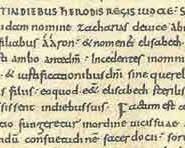 IN DIEBUS HERODIS REGIS IUDEAE S
dam nomine Zacharias de uice Abi
filiabus Aaron & nomen ei elisabeth
sti ambo ante dm Incedentes
& iustificationibus dni sine quere
filius eo quod e& elisabeth sterilis
sissent in diebus suis Factum est a
fungeretur in ordine uicis suae
dum consuetudinem sacerdoti sor